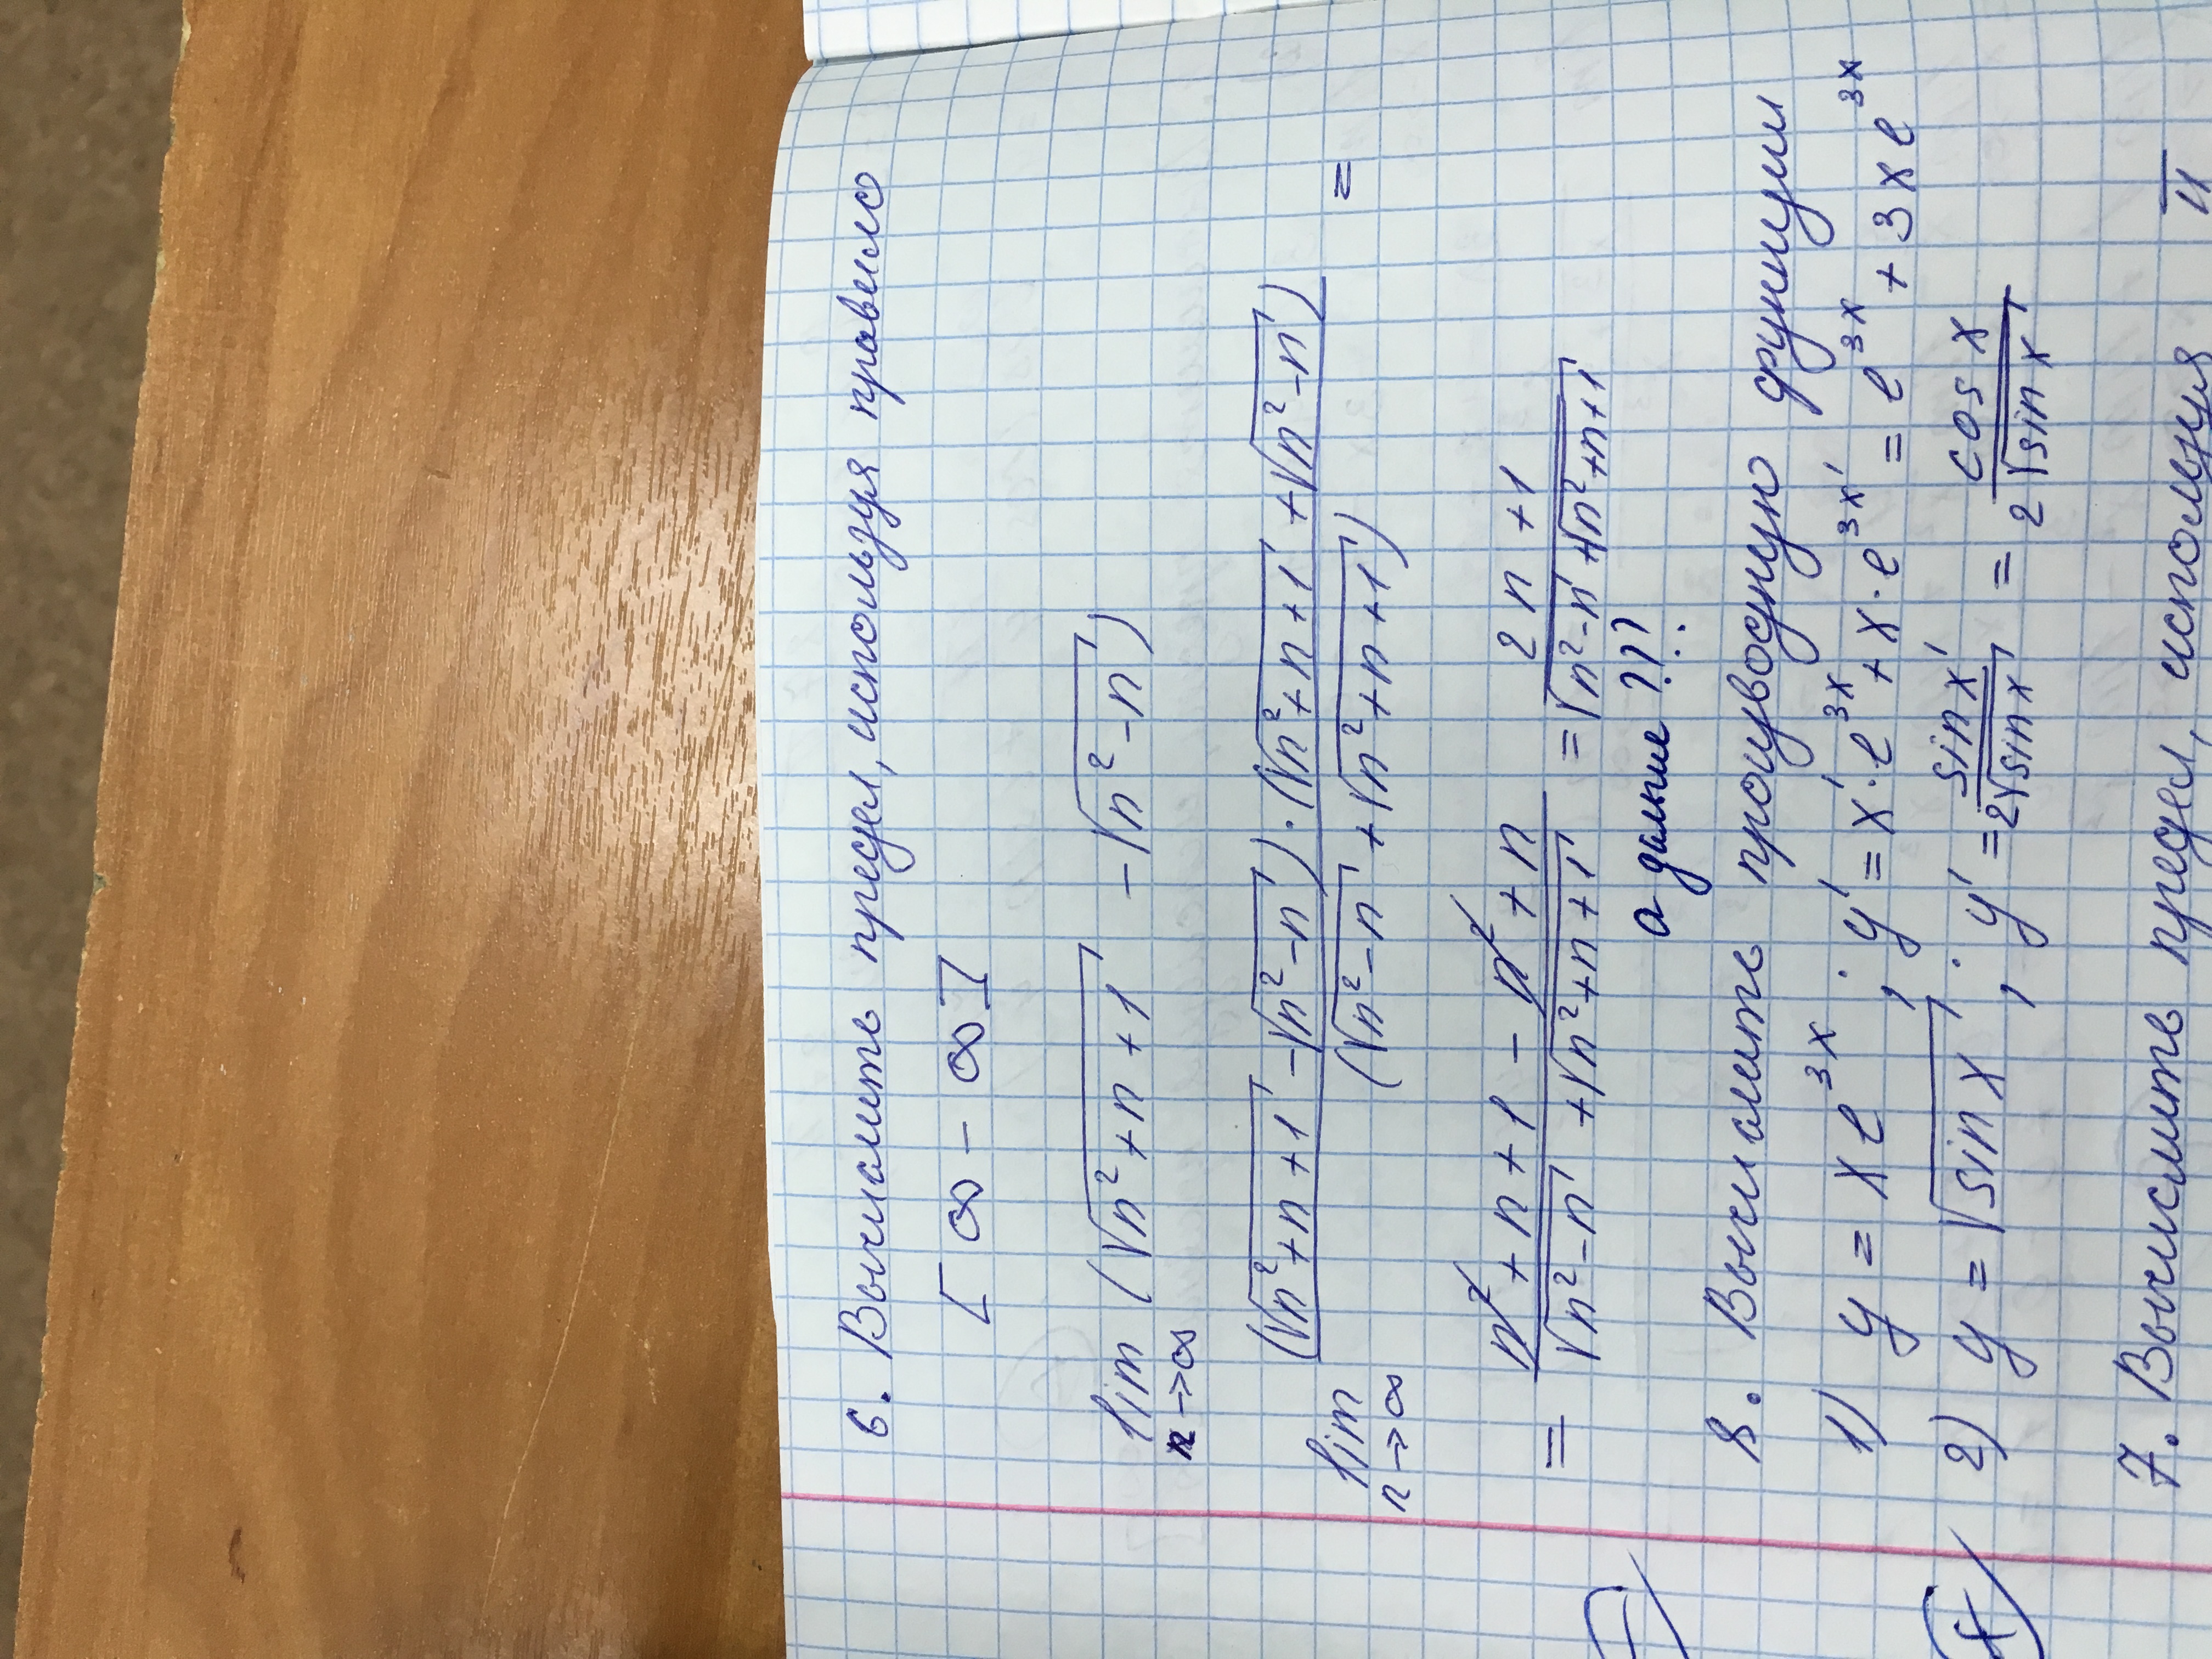 6. Вычислить предел, используя правило
[∞ - ∞]
lim n→∞ (√(n²+n+1) - √(n²-n))
lim n→∞ (√(n²+n+1) - √(n²-n))·(√(n²+n+1) + √(n²-n)) / (√(n²-n) + √(n²+n+1)) =
= (n²+n+1 - n²+n) / (√(n²-n) + √(n²+n+1)) = (2n+1) / (√(n²-n) + √(n²+n+1))
а далше???
8. Вычислить производную функции
1) y = xe³ˣ; y' = x'·e³ˣ + x·e³ˣ' = e³ˣ + 3xe³ˣ
2) y = √(sin x); y' = sin x' / 2√(sin x) = cos x / 2√(sin x)
7. Вычислить предел, используя